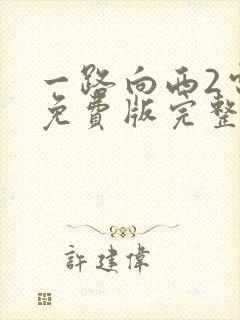 一路向西2
免费版完整
許建偉